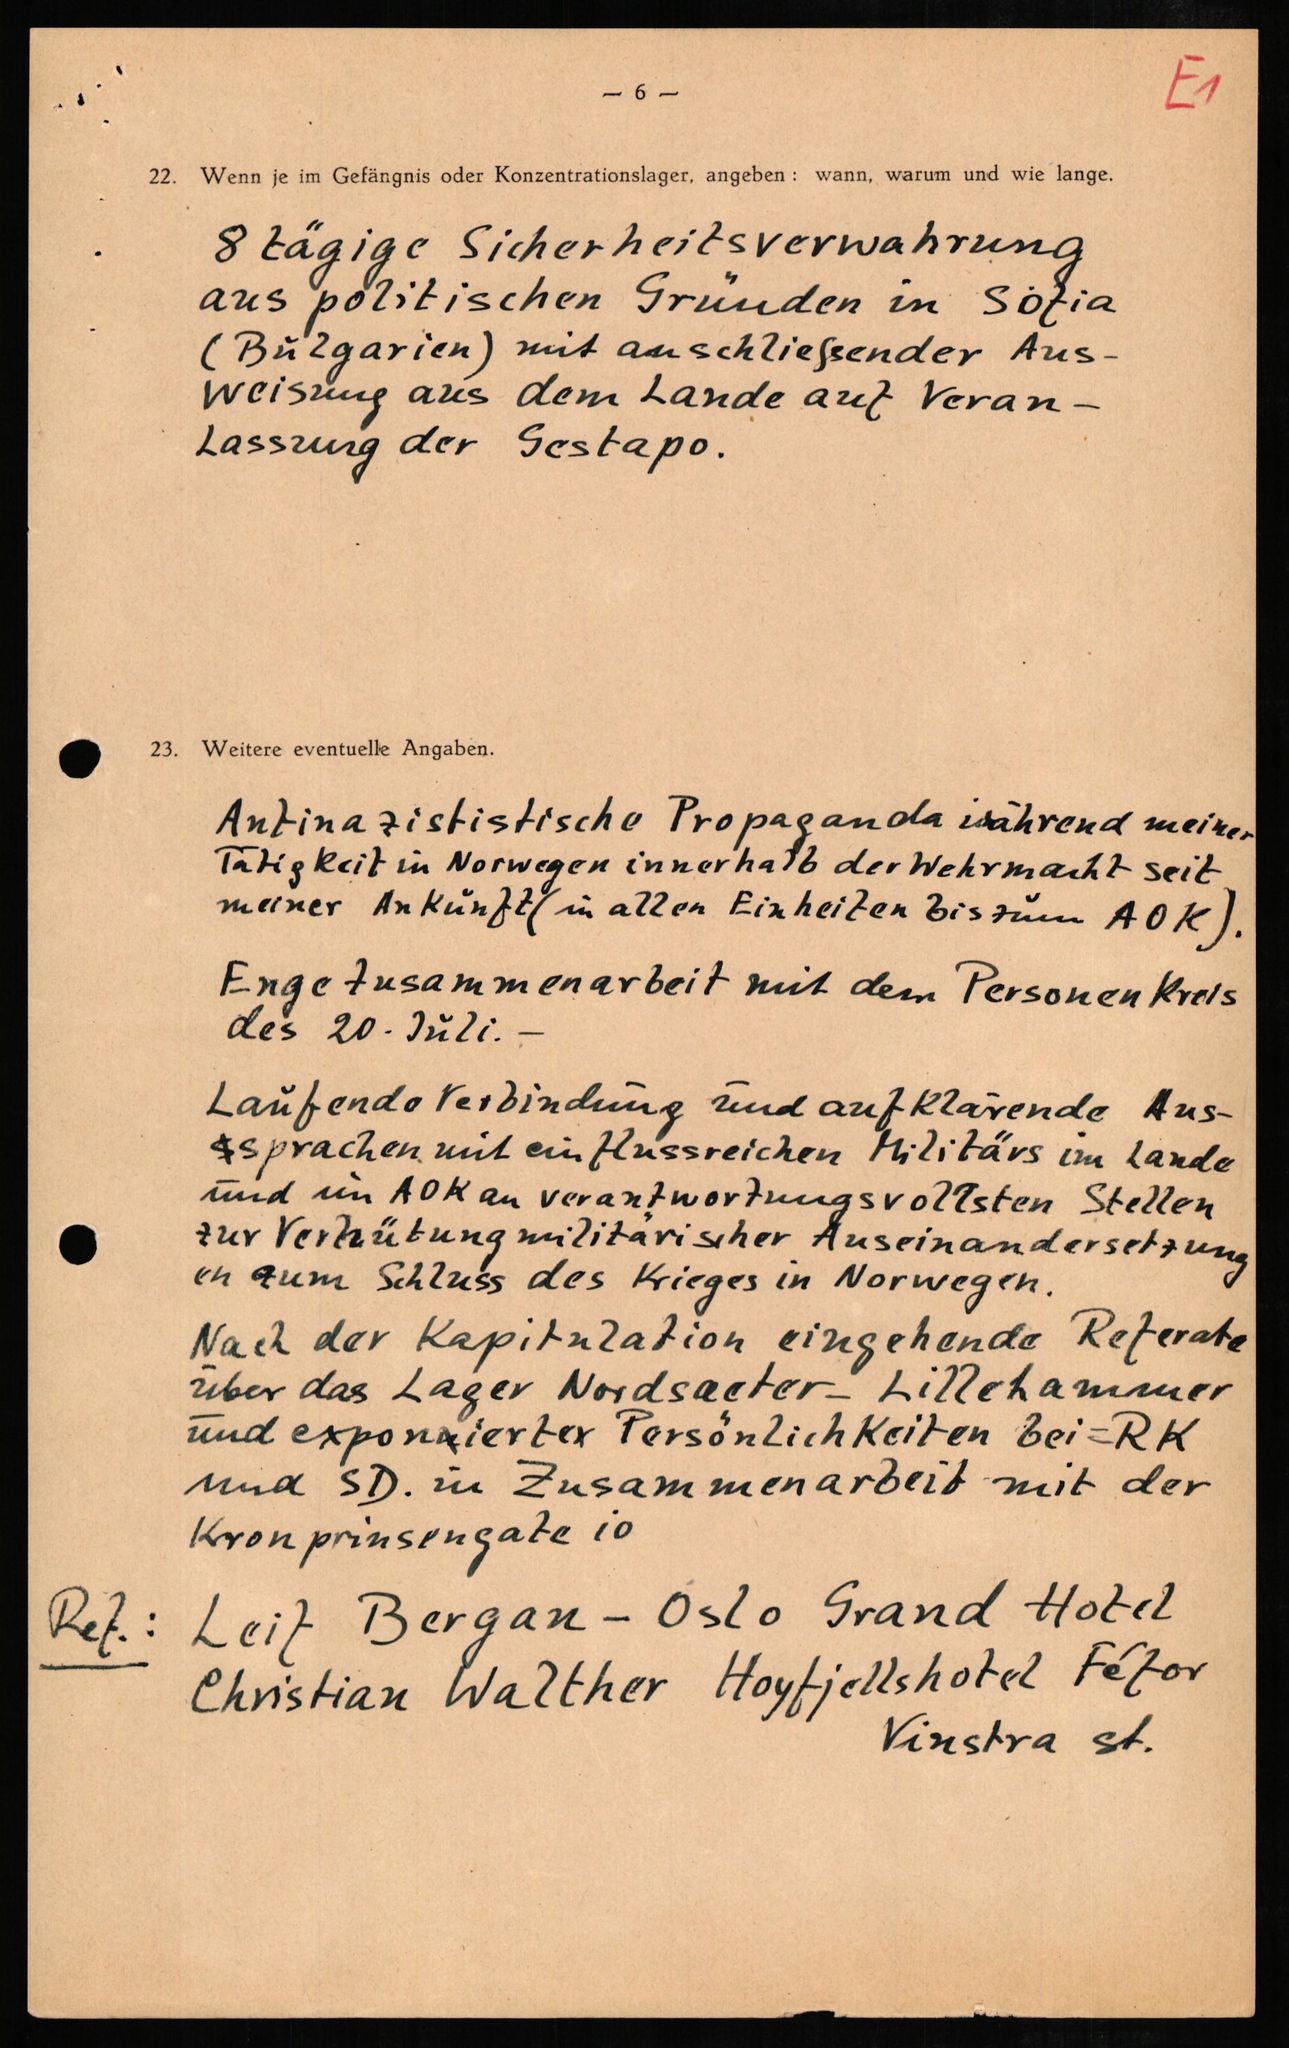 — 6 —
E1
22. Wenn je im Gefängnis oder Konzentrationslager, angeben: wann, warum und wie lange.
8 tägige Sicherheitsverwahrung
aus politischen Gründen in Sofia
(Bulgarien) mit anschließender Aus-
weisung aus dem Lande auf Veran-
lassung der Gestapo.
23. Weitere eventuelle Angaben.
Antinazististische Propaganda während meiner
Tätigkeit in Norwegen innerhalb der Wehrmacht seit
meiner Ankunft (in allen Einheiten bis zum AOK).
Enge Zusammenarbeit mit dem Personenkreis
des 20. Juli. —
Laufende Verbindung und aufklärende Aus-
sprachen mit einflussreichen Militärs im Lande
und im AOK an verantwortungsvollsten Stellen
zur Verhütung militärischer Auseinandersetzung
en zum Schluss des Krieges in Norwegen.
Nach der Kapitulation eingehende Referate
über das Lager Nordsaeter - Lillehammer
und exponierter Persönlichkeiten bei = RK
und SD. in Zusammenarbeit mit der
Kronprinsengate 10
Ref.: Leif Bergan - Oslo Grand Hotel
Christian Walther Hoyfjellshotel Féfor
Vinstra st.